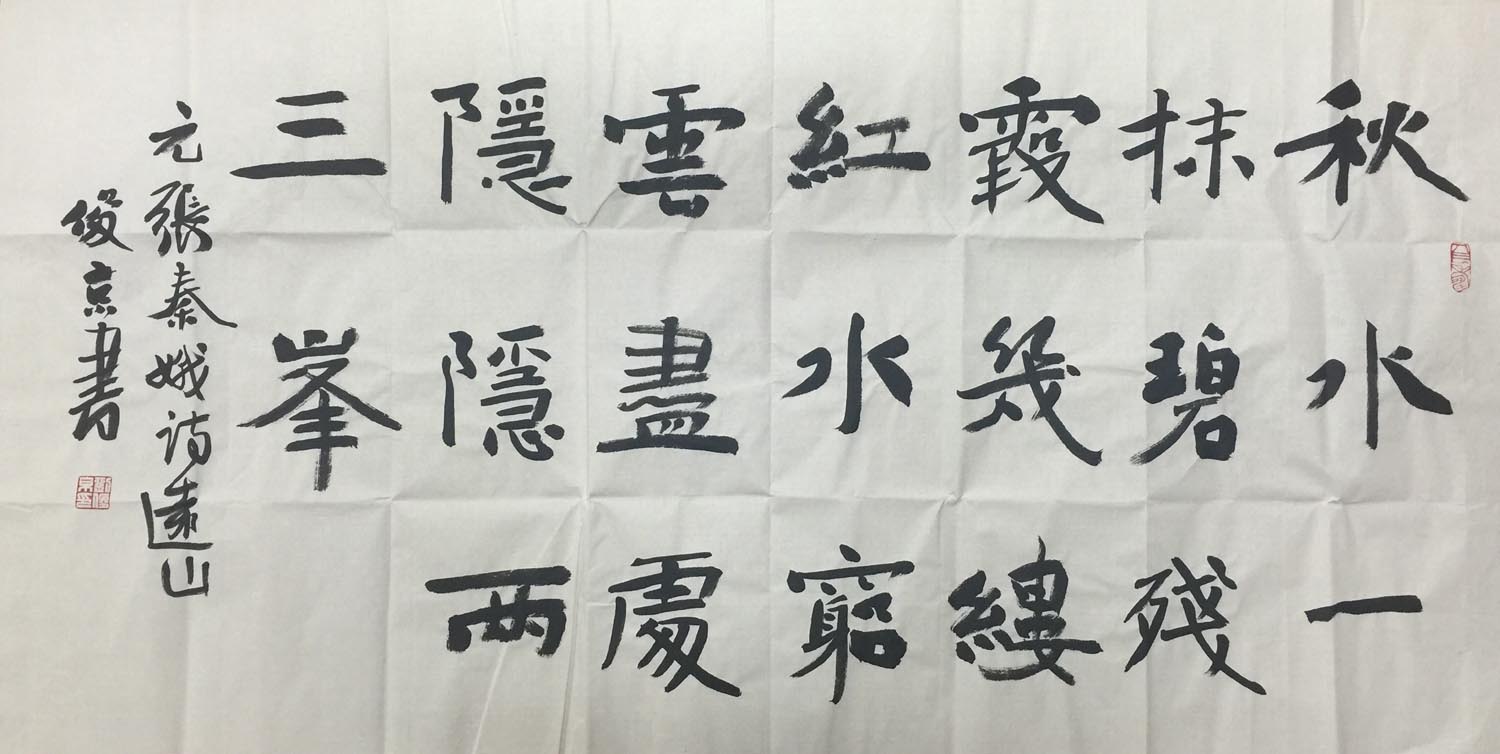 秋水一
抹碧殘
霞幾縷
紅水窮
雲盡處
隱隱兩
三峯
元張秦娥詩遠山
俊京書